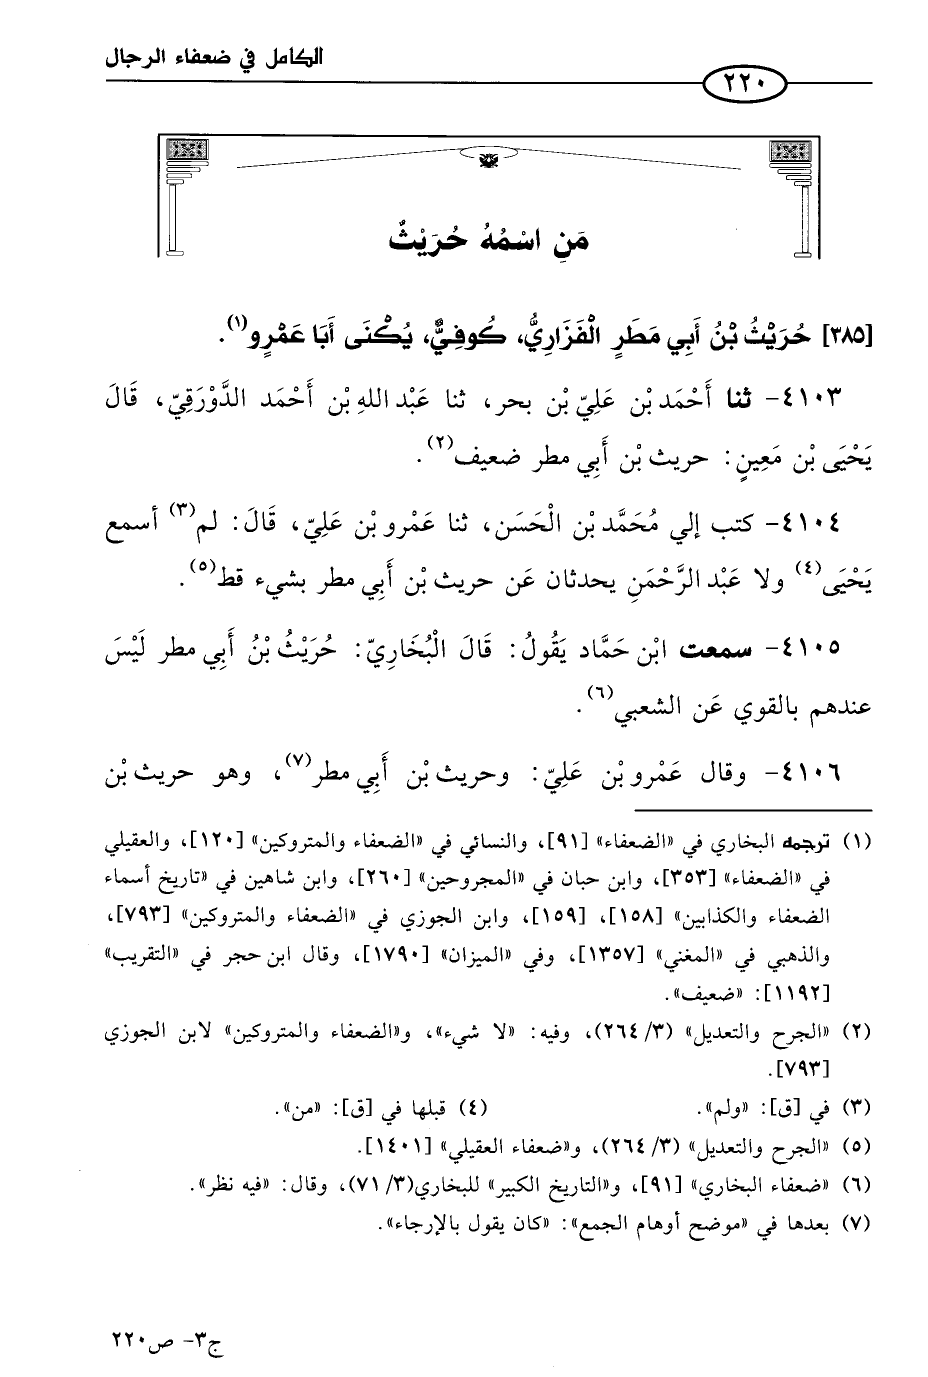 الكامل في ضعفاء الرجال
٢٢٠
مَنِ اسْمُهُ حُرَيْثٌ
[٣٨٥] حُرَيْثُ بْنُ أَبِي مَطَرٍ الْفَزَارِيُّ، كُوفِيٌّ، يُكْنَى أَبَا عَمْرٍو(١).
٤١٠٣- ثنا أَحْمَد بْن عَلِيّ بْن بحر، ثنا عَبْد اللهِ بْن أَحْمَد الدَّوْرَقِيّ، قَالَ
يَحْيَى بْن مَعِينٍ: حريث بْن أَبِي مطر ضعيف(٢).
٤١٠٤- كتب إلي مُحَمَّد بْن الْحَسَن، ثنا عَمْرو بْن عَلِيّ، قَالَ: لم(٣) أسمع
يَحْيَى(٤) ولا عَبْد الرَّحْمَنِ يحدثان عَن حريث بْن أَبِي مطر بشيء قط(٥).
٤١٠٥- سمعت ابْن حَمَّاد يَقُولُ: قَالَ الْبُخَارِيّ: حُرَيْثُ بْنُ أَبِي مطر لَيْسَ
عندهم بالقوي عَن الشعبي(٦).
٤١٠٦- وقال عَمْرو بْن عَلِيّ: وحريث بْن أَبِي مطر(٧)، وهو حريث بْن
(١) ترجمه البخاري في «الضعفاء» [٩١]، والنسائي في «الضعفاء والمتروكين» [١٢٠]، والعقيلي
في «الضعفاء» [٣٥٣]، وابن حبان في «المجروحين» [٢٦٠]، وابن شاهين في «تاريخ أسماء
الضعفاء والكذابين» [١٥٨]، [١٥٩]، وابن الجوزي في «الضعفاء والمتروكين» [٧٩٣]،
والذهبي في «المغني» [١٣٥٧]، وفي «الميزان» [١٧٩٠]، وقال ابن حجر في «التقريب»
[١١٩٢]: «ضعيف».
(٢) «الجرح والتعديل» (٣/ ٢٦٤)، وفيه: «لا شيء»، و«الضعفاء والمتروكين» لابن الجوزي
[٧٩٣].
(٣) في [ق]: «ولم». (٤) قبلها في [ق]: «من».
(٥) «الجرح والتعديل» (٣/ ٢٦٤)، و«ضعفاء العقيلي» [١٤٠١].
(٦) «ضعفاء البخاري» [٩١]، و«التاريخ الكبير» للبخاري(٣/ ٧١)، وقال: «فيه نظر».
(٧) بعدها في «موضح أوهام الجمع»: «كان يقول بالإرجاء».
ج٣- ص٢٢٠